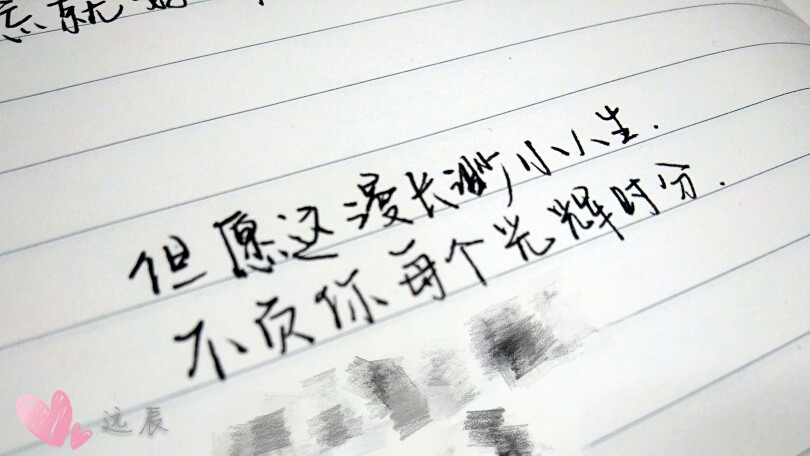 忘就
但愿这漫长渺小人生.
不负你每个光辉时分.
远辰